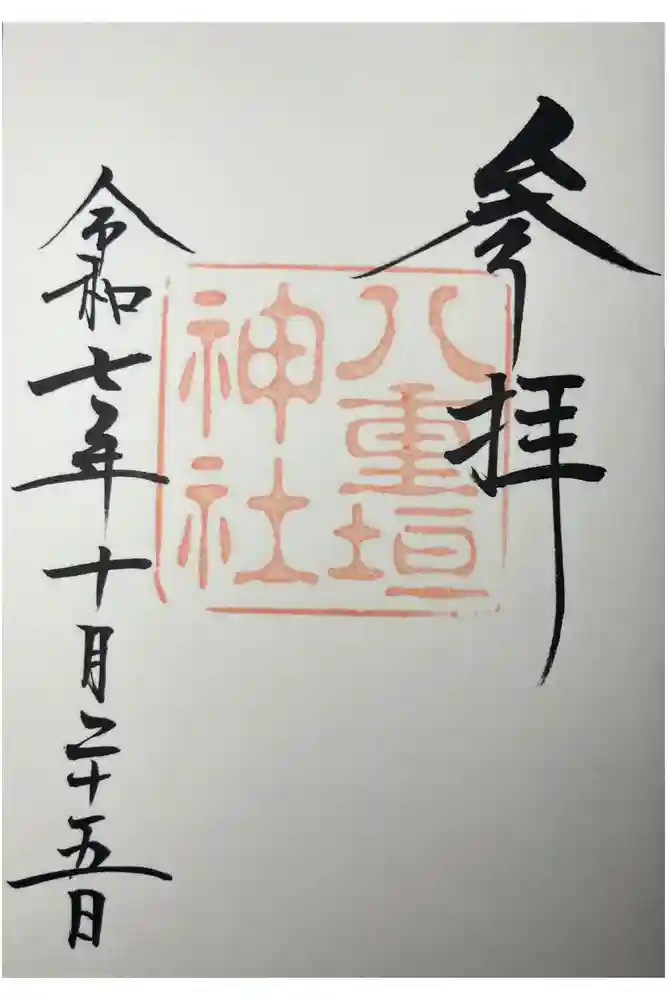 参拝
八重垣
神社
令和七年十月二十五日